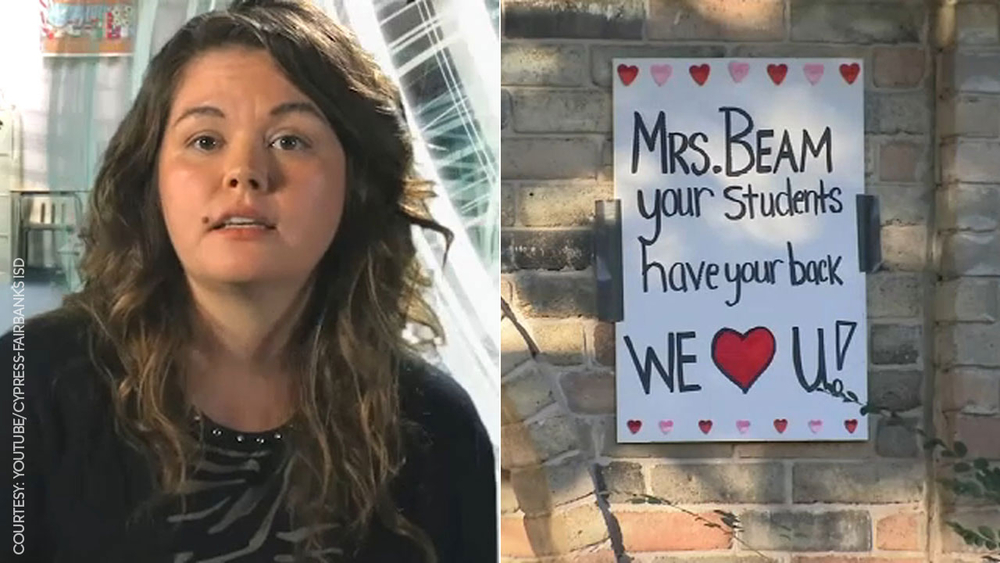 COURTESY: YOUTUBE/CYPRESS-FAIRBANKS ISD
MRS. BEAM
your students
have your back
WE ♥ U!